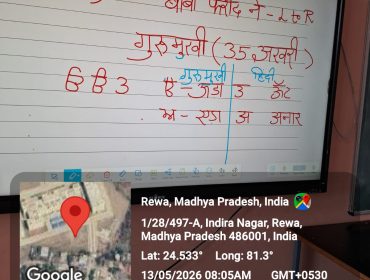 बाबा फरीद ने - L to R
गुरुमुखी (35 अखरी)
गुरुमुखी हिंदी
ੳ - ऊड़ा उ ऊँट
ਅ - एड़ा अ अनार
Rewa, Madhya Pradesh, India
1/28/497-A, Indira Nagar, Rewa,
Madhya Pradesh 486001, India
Lat: 24.533° Long: 81.3°
13/05/2026 08:05AM GMT+0530
Google